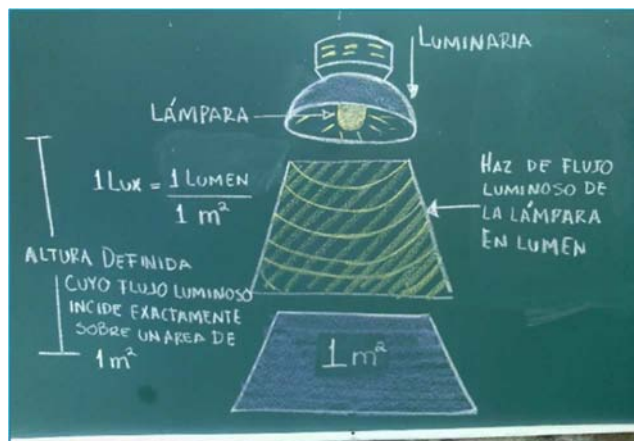 LUMINARIA
LÁMPARA
1 LUX = 1 LUMEN
1 m²
HAZ DE FLUJO
LUMINOSO DE
LA LÁMPARA
EN LUMEN
ALTURA DEFINIDA
CUYO FLUJO LUMINOSO
INCIDE EXACTAMENTE
SOBRE UN AREA DE
1 m²
1 m²